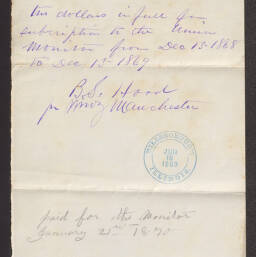 ten dollars in full for
subscription to the Union
Monitor from Dec 13 1868
to Dec 13 1869
B. S. Hood
pr Manchester
HILLSBORO
JUN
18
1869
ILLINOIS
paid for the Monitor
January 21st 1870